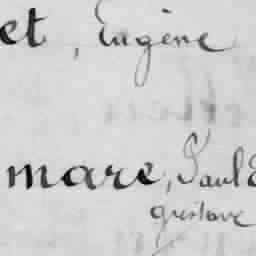 et, Eugène
mare, Paul E
gustave